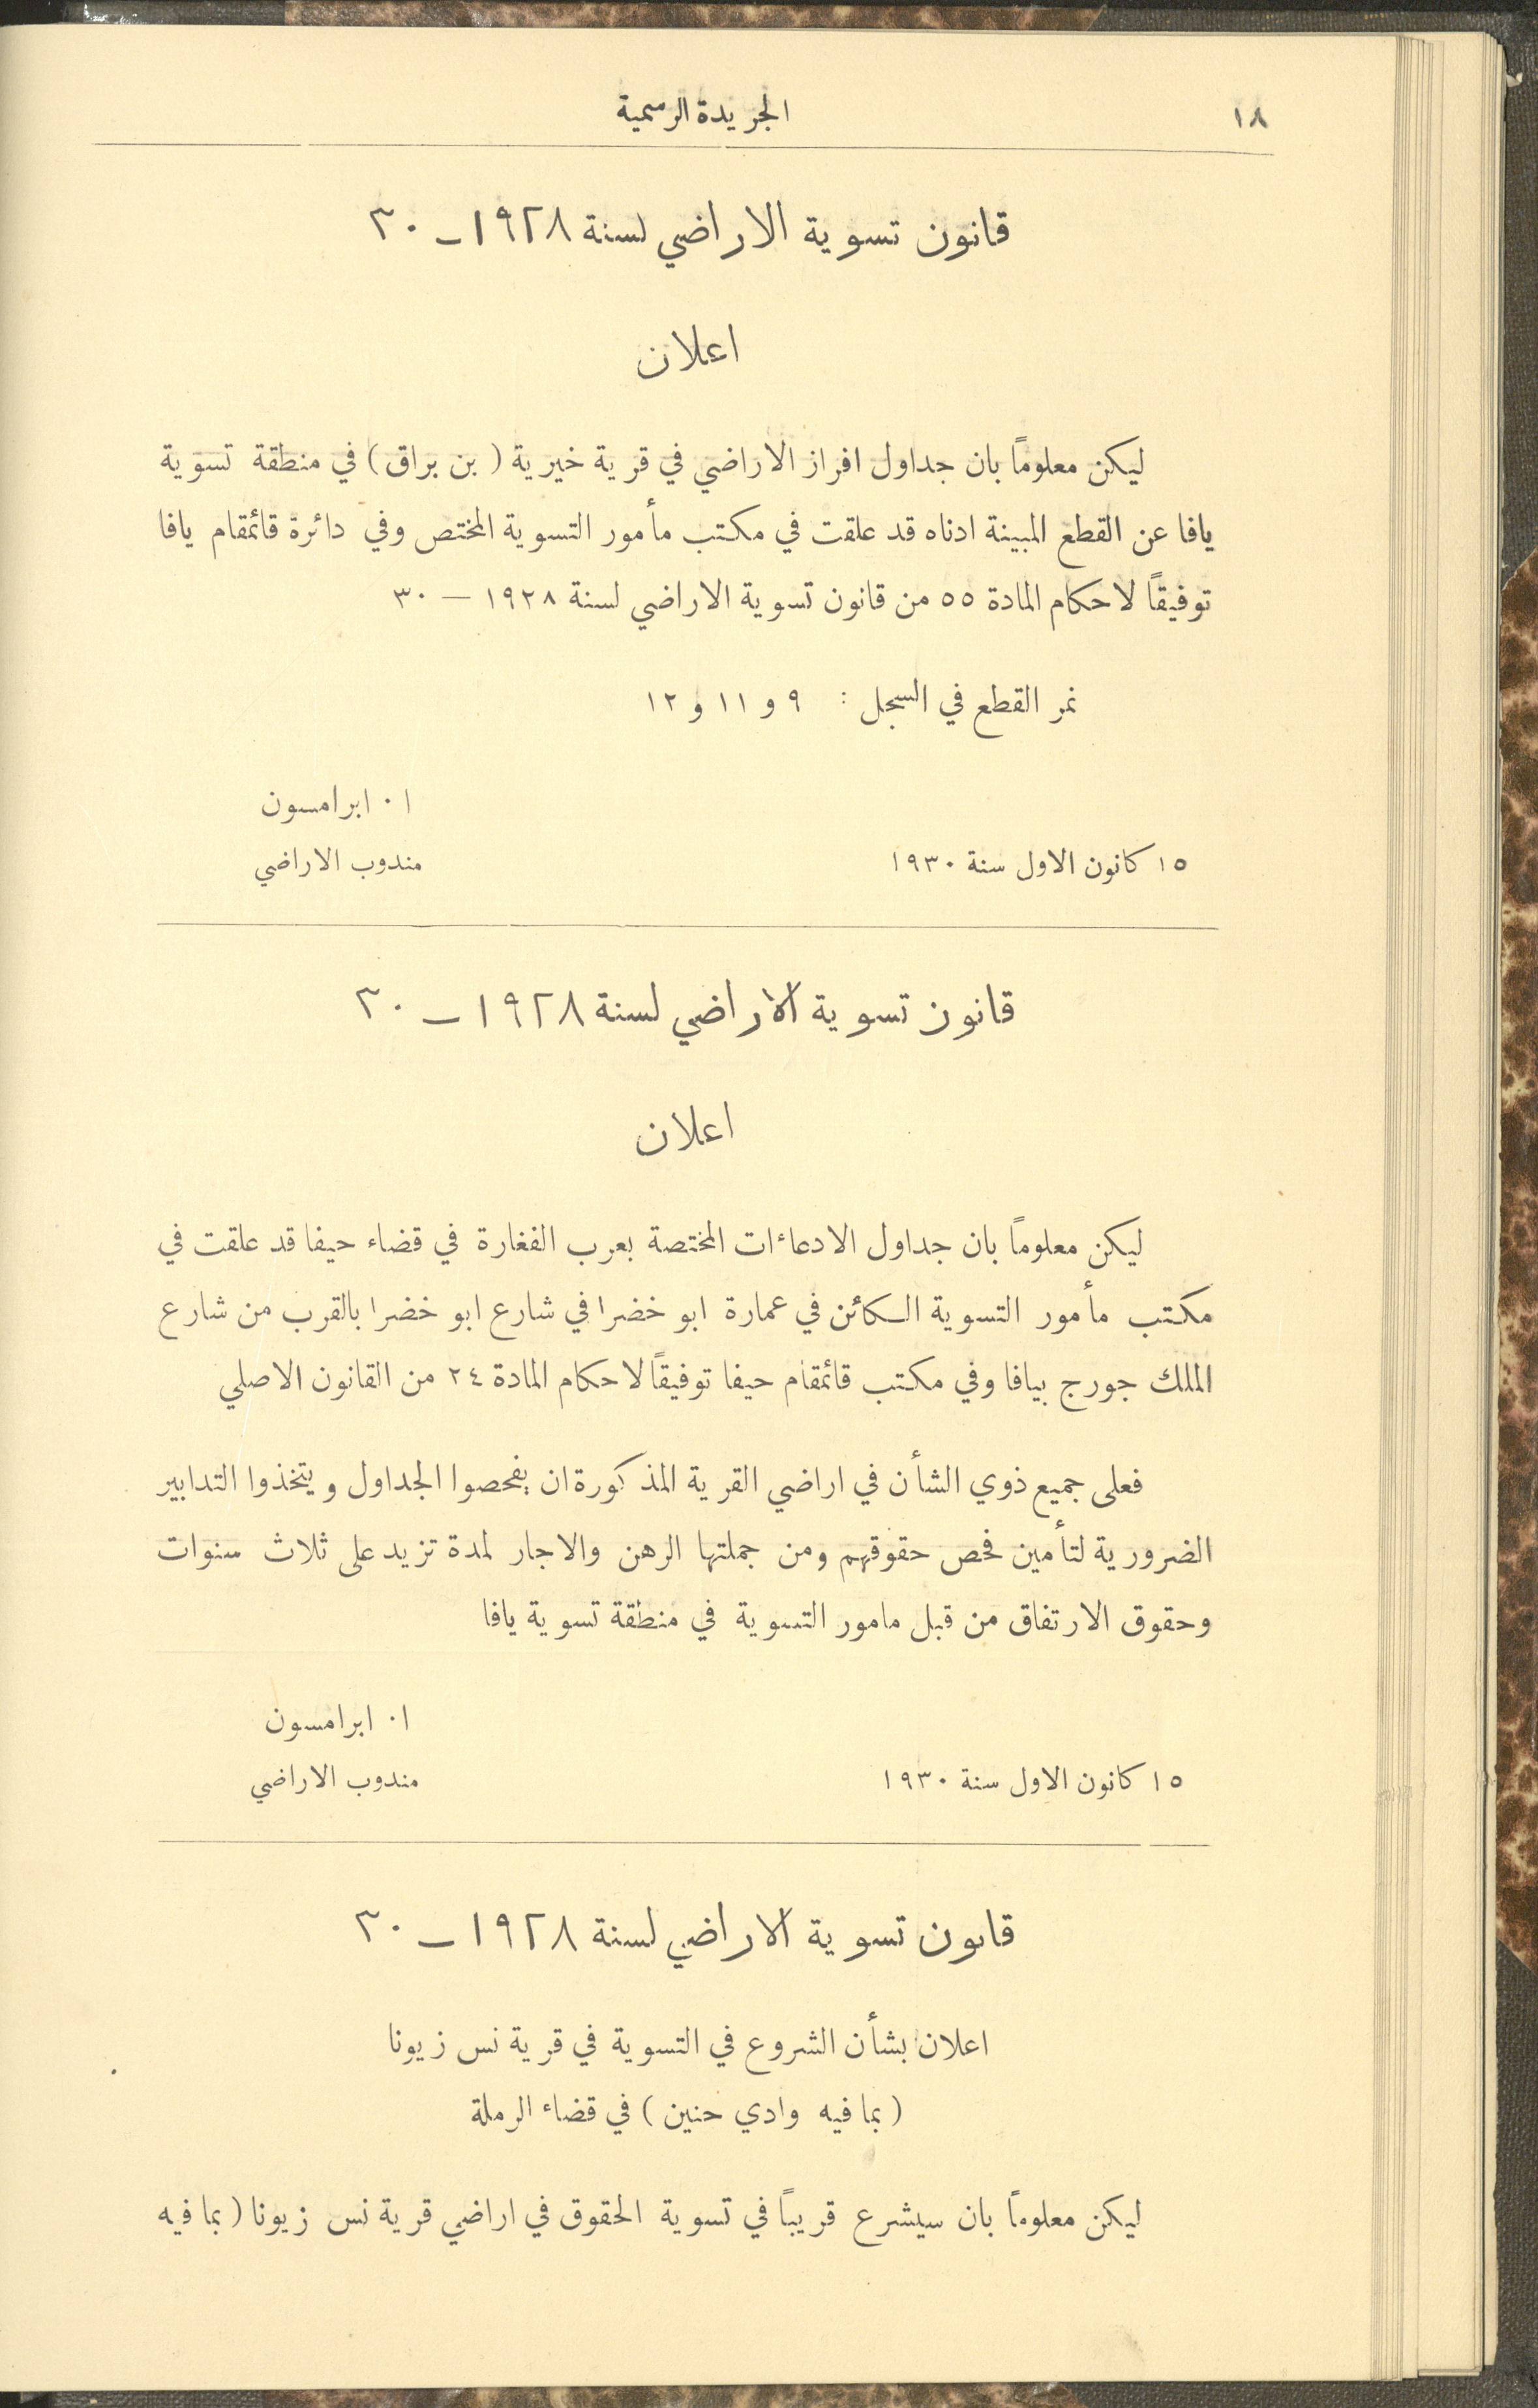 ١٨
الجريدة الرسمية
قانون تسوية الاراضي لسنة ١٩٢٨ـ٣٠
اعلان
ليكن معلوماً بان جداول افراز الاراضي في قرية خيرية ( بن براق ) في منطقة تسوية
يافا عن القطع المبينة ادناه قد علقت في مكتب مأمور التسوية المختص وفي دائرة قائمقام يافا
توفيقاً لاحكام المادة ٥٥ من قانون تسوية الاراضي لسنة ١٩٢٨ – ٣٠
نمر القطع في السجل : ٩ و ١١ و ١٢
ا ٠ ابرامسون
١٥ كانون الاول سنة ١٩٣٠
مندوب الاراضي
قانون تسوية الاراضي لسنة ١٩٢٨ـ٣٠
اعلان
ليكن معلوماً بان جداول الادعاءات المختصة بعرب الفغارة في قضاء حيفا قد علقت في
مكتب مأمور التسوية الكائن في عمارة ابو خضرا في شارع ابو خضرا بالقرب من شارع
الملك جورج بيافا وفي مكتب قائمقام حيفا توفيقاً لاحكام المادة ٢٤ من القانون الاصلي
فعلى جميع ذوي الشأن في اراضي القرية المذكورة ان يفحصوا الجداول ويتخذوا التدابير
الضرورية لتأمين فحص حقوقهم ومن جملتها الرهن والاجار لمدة تزيد على ثلاث سنوات
وحقوق الارتفاق من قبل مامور التسوية في منطقة تسوية يافا
ا ٠ ابرامسون
١٥ كانون الاول سنة ١٩٣٠
مندوب الاراضي
قانون تسوية الاراضي لسنة ١٩٢٨ـ٣٠
اعلان بشأن الشروع في التسوية في قرية نس زيونا
( بما فيه وادي حنين ) في قضاء الرملة
ليكن معلوماً بان سيشرع قريباً في تسوية الحقوق في اراضي قرية نس زيونا ( بما فيه